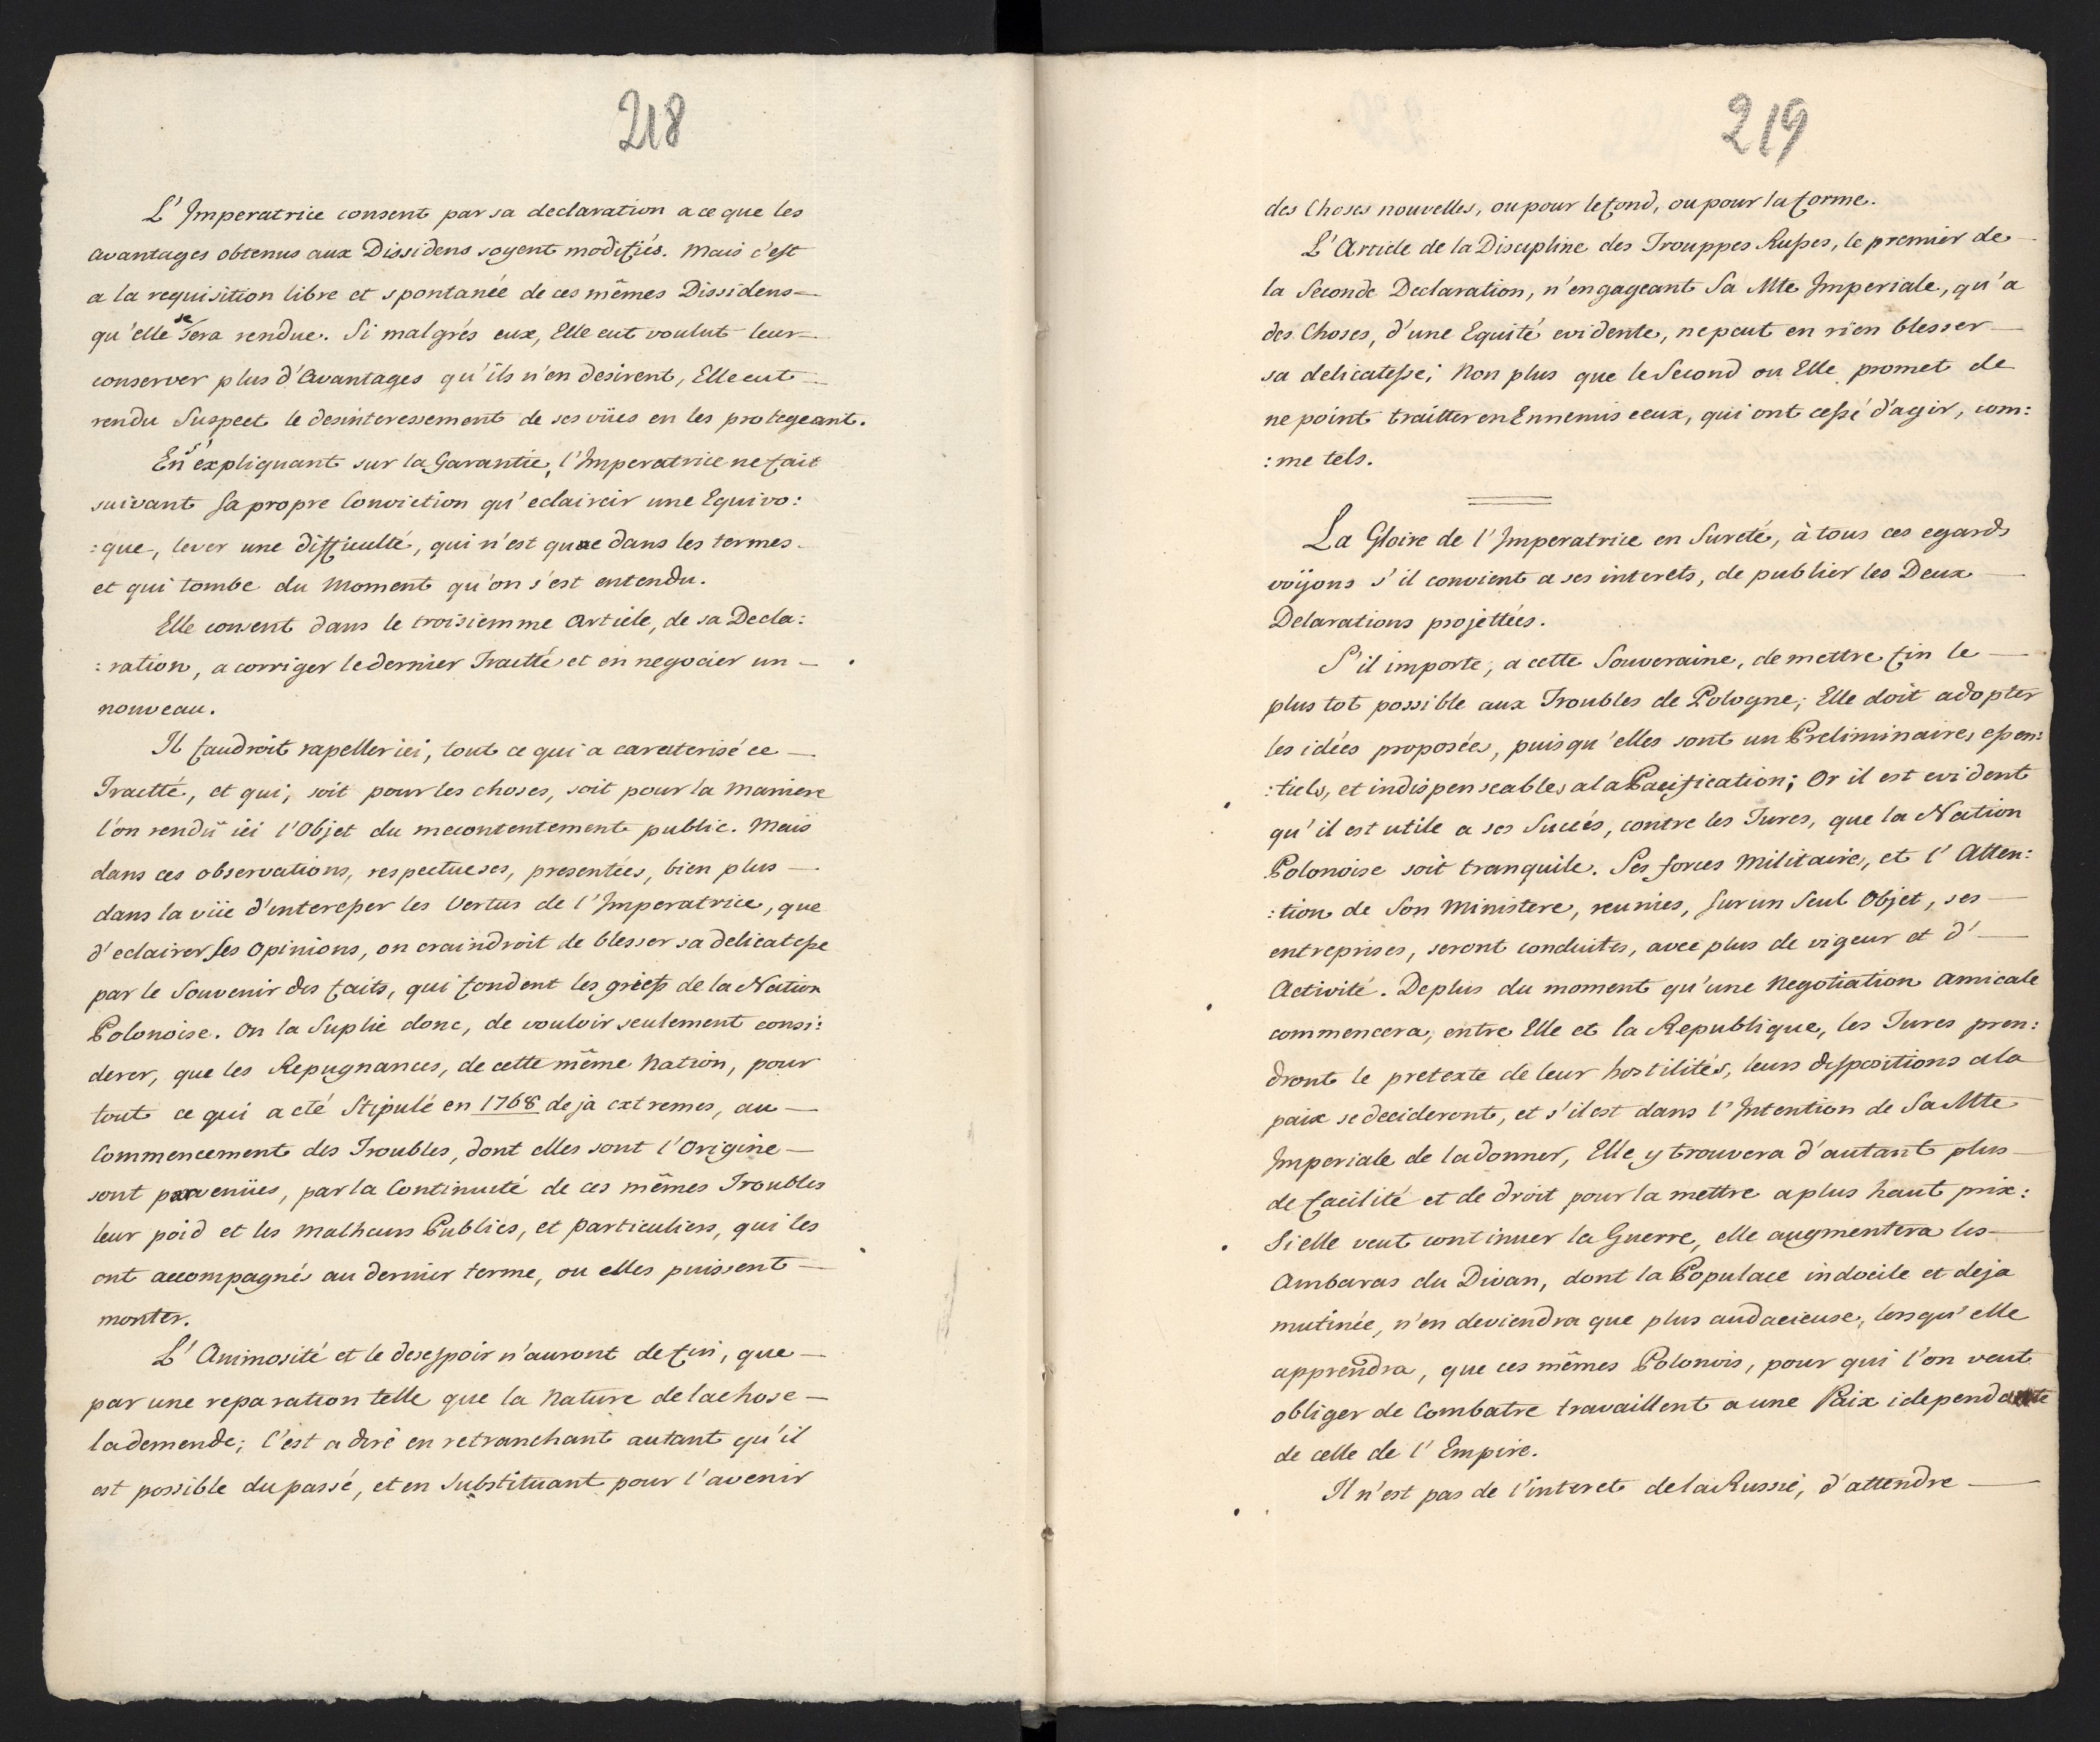 218
L' Imperatrice consent par sa declaration a ce que les
avantages obtenus aux Dissidens soyent modifiés. Mais c'est
a la requisition libre et spontanée de ces mêmes Dissidens —
qu'elle se sera rendue. Si malgrés eux, Elle eut voulut leur —
conserver plus d'Avantages qu'ils n'en desirent, Elle eut —
rendu Suspect le desinteressement de ses vües en les protegeant.
En s'expliquant sur la Garantie, l'Imperatrice ne fait
suivant sa propre Conviction qu'eclaircir une Equivo:
:que, lever une difficulté, qui n'est que dans les termes
et qui tombe du Moment qu'on s'est entendu.
Elle consent dans le troisiemme Article, de sa Decla:
:ration, a corriger le dernier Traitté et en negocier un —
nouveau.
Il faudroit rapeller ici, tout ce qui a caraterisé ce —
Traitté, et qui, soit pour les choses, soit pour la Maniere
l'on rendû ici l'Objet du mecontentement public. Mais
dans ces observations, respectueses, presentées, bien plus —
dans la vüe d'interesser les Vertus de l'Imperatrice, que
d'eclairer ses Opinions, on craindroit de blesser sa delicatesse
par le Souvenir des faits, qui fondent les griefs de la Nation
Polonoise. On la Suplie donc, de vouloir seulement consi:
derer, que les Repugnances, de cette même Nation, pour
tout ce qui a eté Stipulé en 1768 deja extremes, au —
Commencement des Troubles, dont elles sont l'Origine —
sont parvenües, par la Continuité de ces mêmes Troubles
leur poid et les Malheurs Publics, et particuliers, qui les
ont accompagnés au dernier terme, ou elles puissent —
monter.
L' Animosité et le desespoir n'auront de fin, que —
par une reparation telle que la Nature de la chose —
la demende; C'est a dire en retranchant autant qu'il
est possible du passé, et en Substituant pour l'avenir
219
des Choses nouvelles, ou pour le fond, ou pour la forme.
L' Article de la Discipline des Trouppes Russes, le premier de
la Seconde Declaration, n'engageant Sa Mte Imperiale, qu'a
des Choses, d'une Equité evidente, ne peut en rien blesser —
sa delicatesse; Non plus que le Second ou Elle promet de
ne point traitter en Ennemis ceux, qui ont cessé d'agir, com:
:me tels.
La Gloire de l'Imperatrice en Sureté, à tous ces egards
voÿons s'il convient a ses interets, de publier les Deux —
Delarations projettées.
S'il importe, a cette Souveraine, de mettre fin le —
plus tot possible aux Troubles de Pologne; Elle doit adopter
les idées proposées, puisqu'elles sont un Preliminaires essen:
:tiels, et indispenseables a la Pacification; Or il est evident
qu'il est utile a ses Succés, contre les Turcs, que la Nation
Polonoise soit tranquile. Ses forces Militaires, et l'Atten:
:tion de Son Ministere, reunies, sur un Seul Objet, ses —
entreprises, seront conduites, avec plus de vigeur et d' —
Activité. De plus du moment qu'une Negotiation amicale
commencera, entre Elle et la Republique, les Turcs pren:
dront le pretexte de leur hostilités, leurs dispositions a la
paix se decideront, et s'il est dans l'Intention de Sa Mte
Imperiale de la donner, Elle y trouvera d'autant plus —
de facilité et de droit pour la mettre a plus haut prix:
Si elle veut continuer la Guerre, elle augmentera les —
Ambaras du Divan, dont la Populace indocile et deja
mutinée, n'en deviendra que plus audacieuse, lorsqu'elle
apprendra, que ces mêmes Polonois, pour qui l'on veut
obliger de Combatre travaillent a une Paix idependante
de celle de l'Empire.
Il n'est pas de l'interet de la Russie, d'attendre —